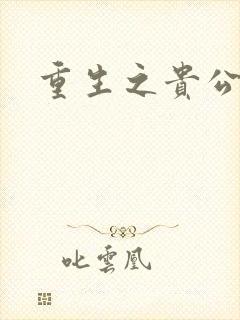 重生之貴公
叱雲凰